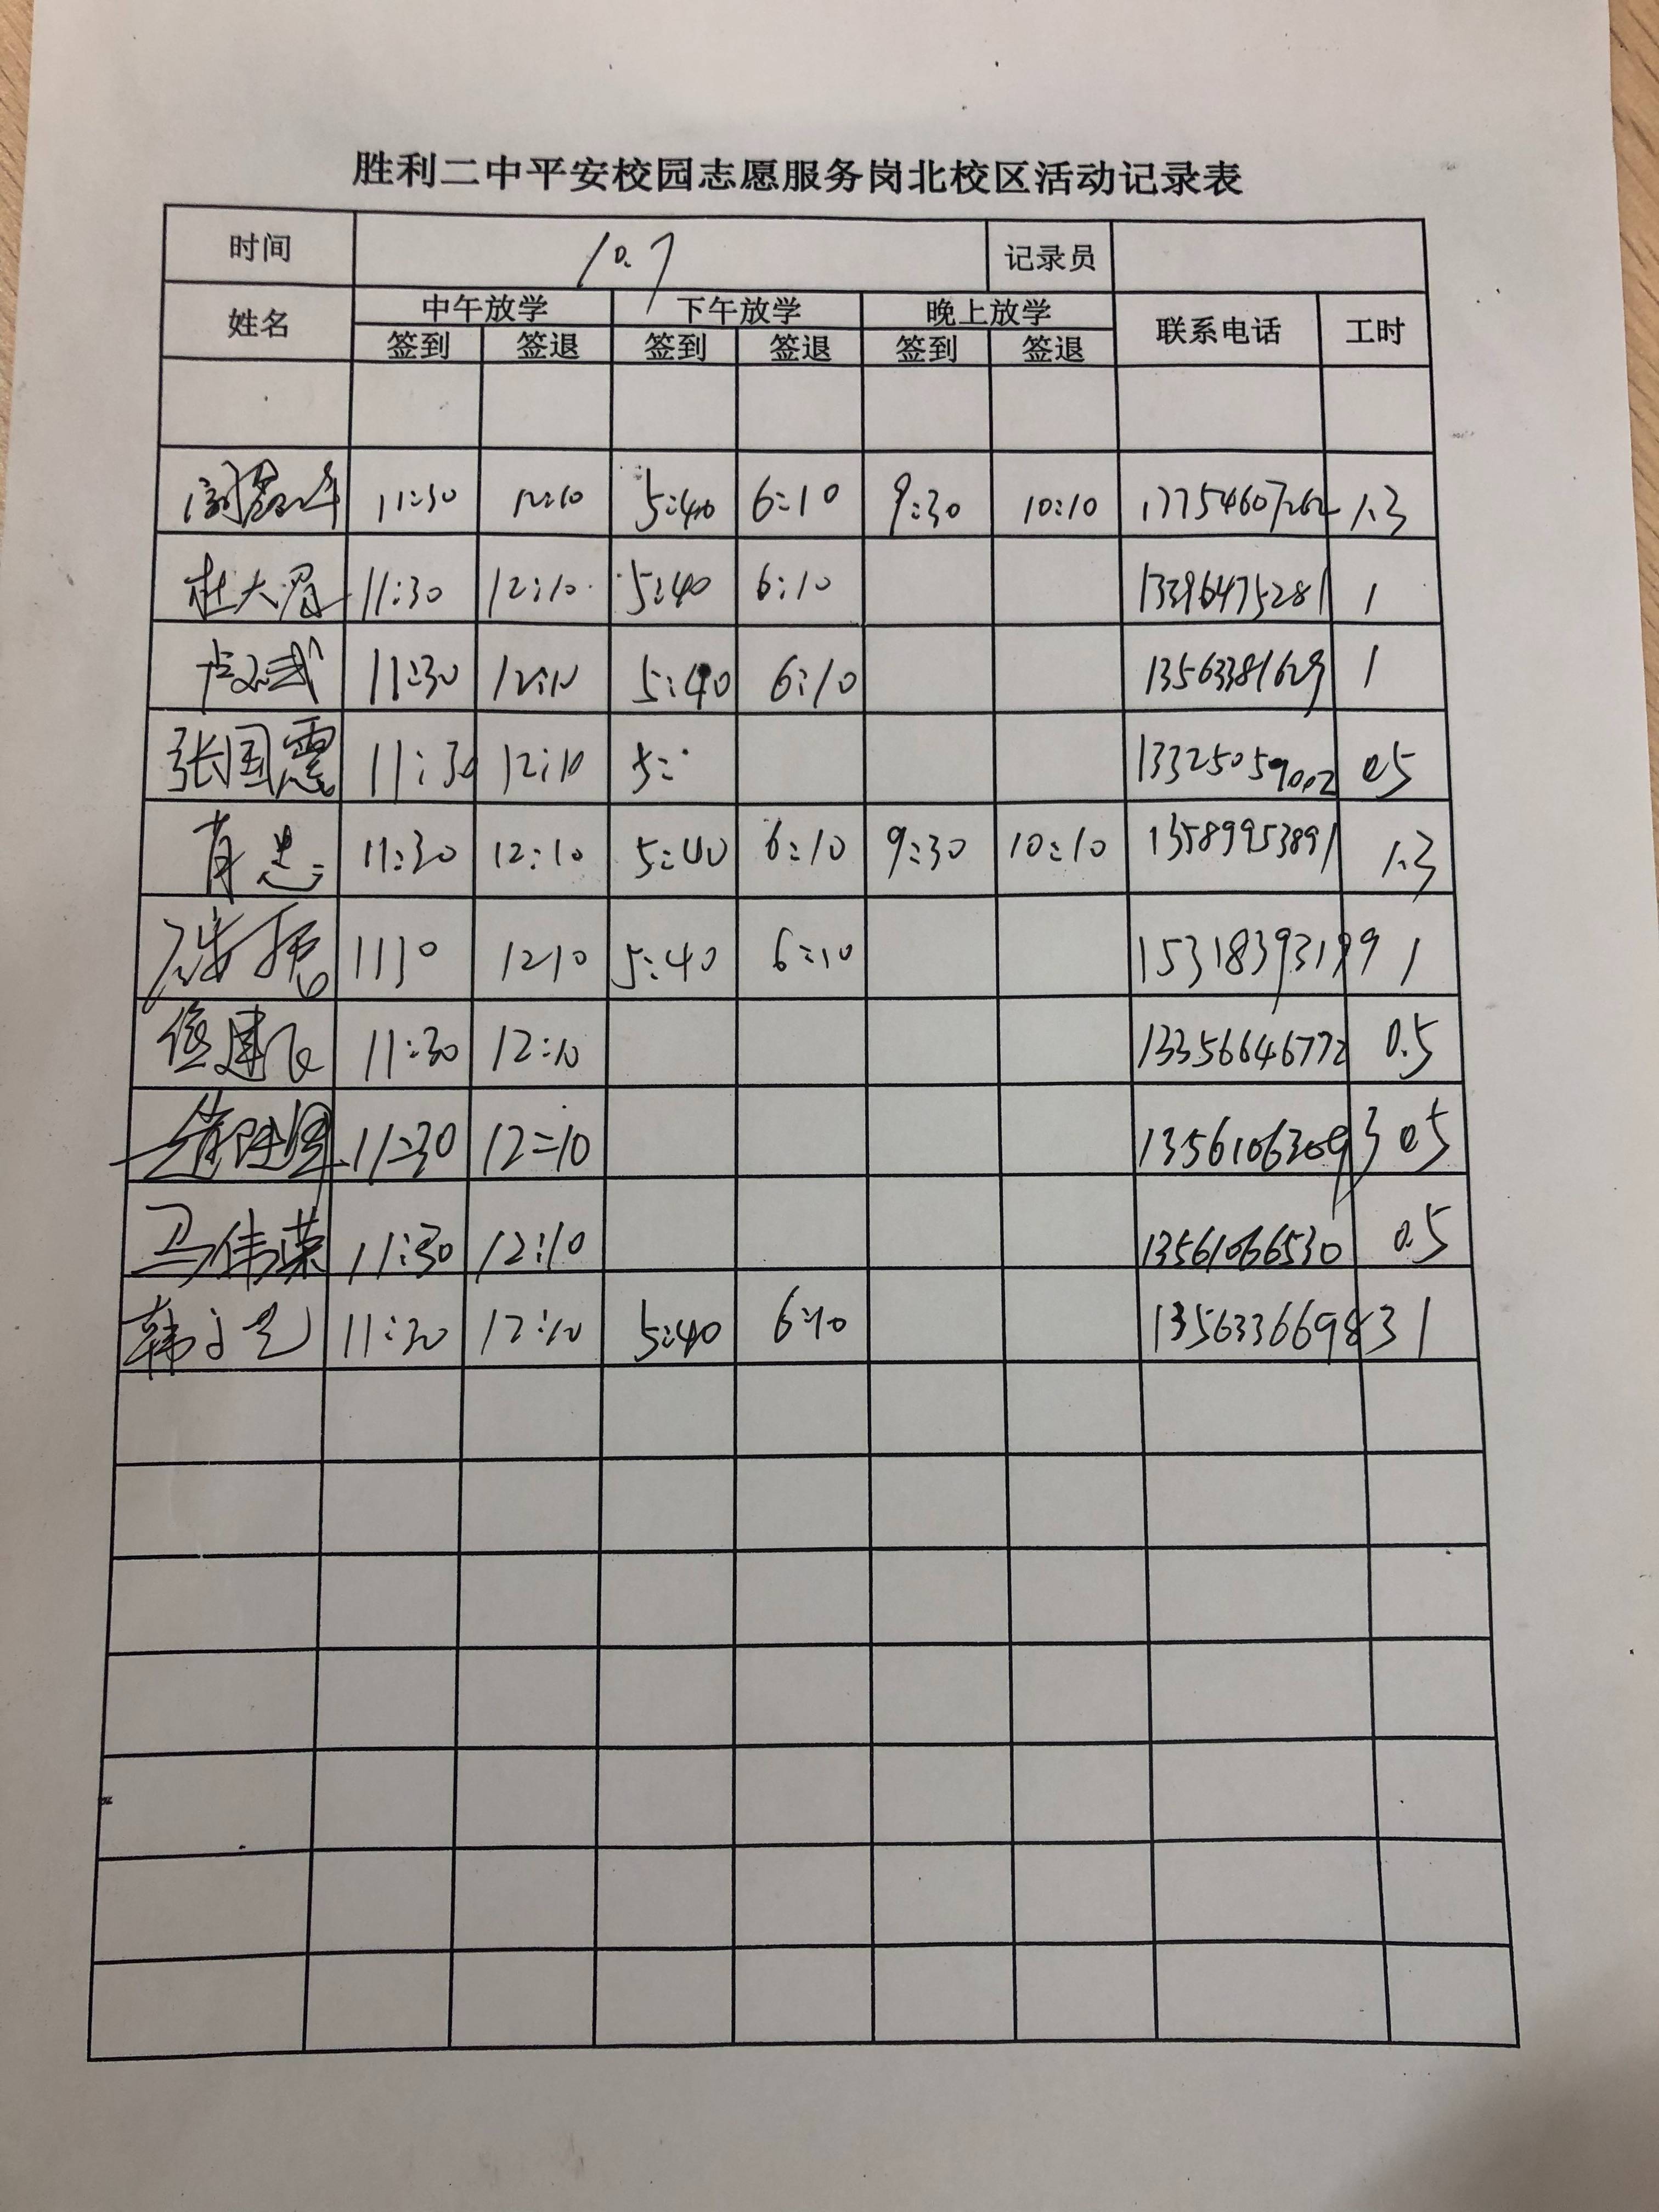 胜利二中平安校园志愿服务岗北校区活动记录表
时间 10.7 记录员
姓名 中午放学 下午放学 晚上放学 联系电话 工时
签到 签退 签到 签退 签到 签退
11:30 12:10 5:40 6:10 9:30 10:10 1.3
杜大 11:30 12:10 5:40 6:10 13396475281 1
11:30 12:10 5:40 6:10 13563381629 1
张国震 11:30 12:10 5: 13325059002 0.5
肖忠 11:30 12:10 5:40 6:10 9:30 10:10 13589953891 1.3
1130 1210 5:40 6:10 15318393199 1
建飞 11:30 12:10 13356646772 0.5
11:30 12:10 13561063093 0.5
马伟荣 11:30 12:10 13561066530 0.5
韩 11:30 12:10 5:40 6:10 13563366983 1